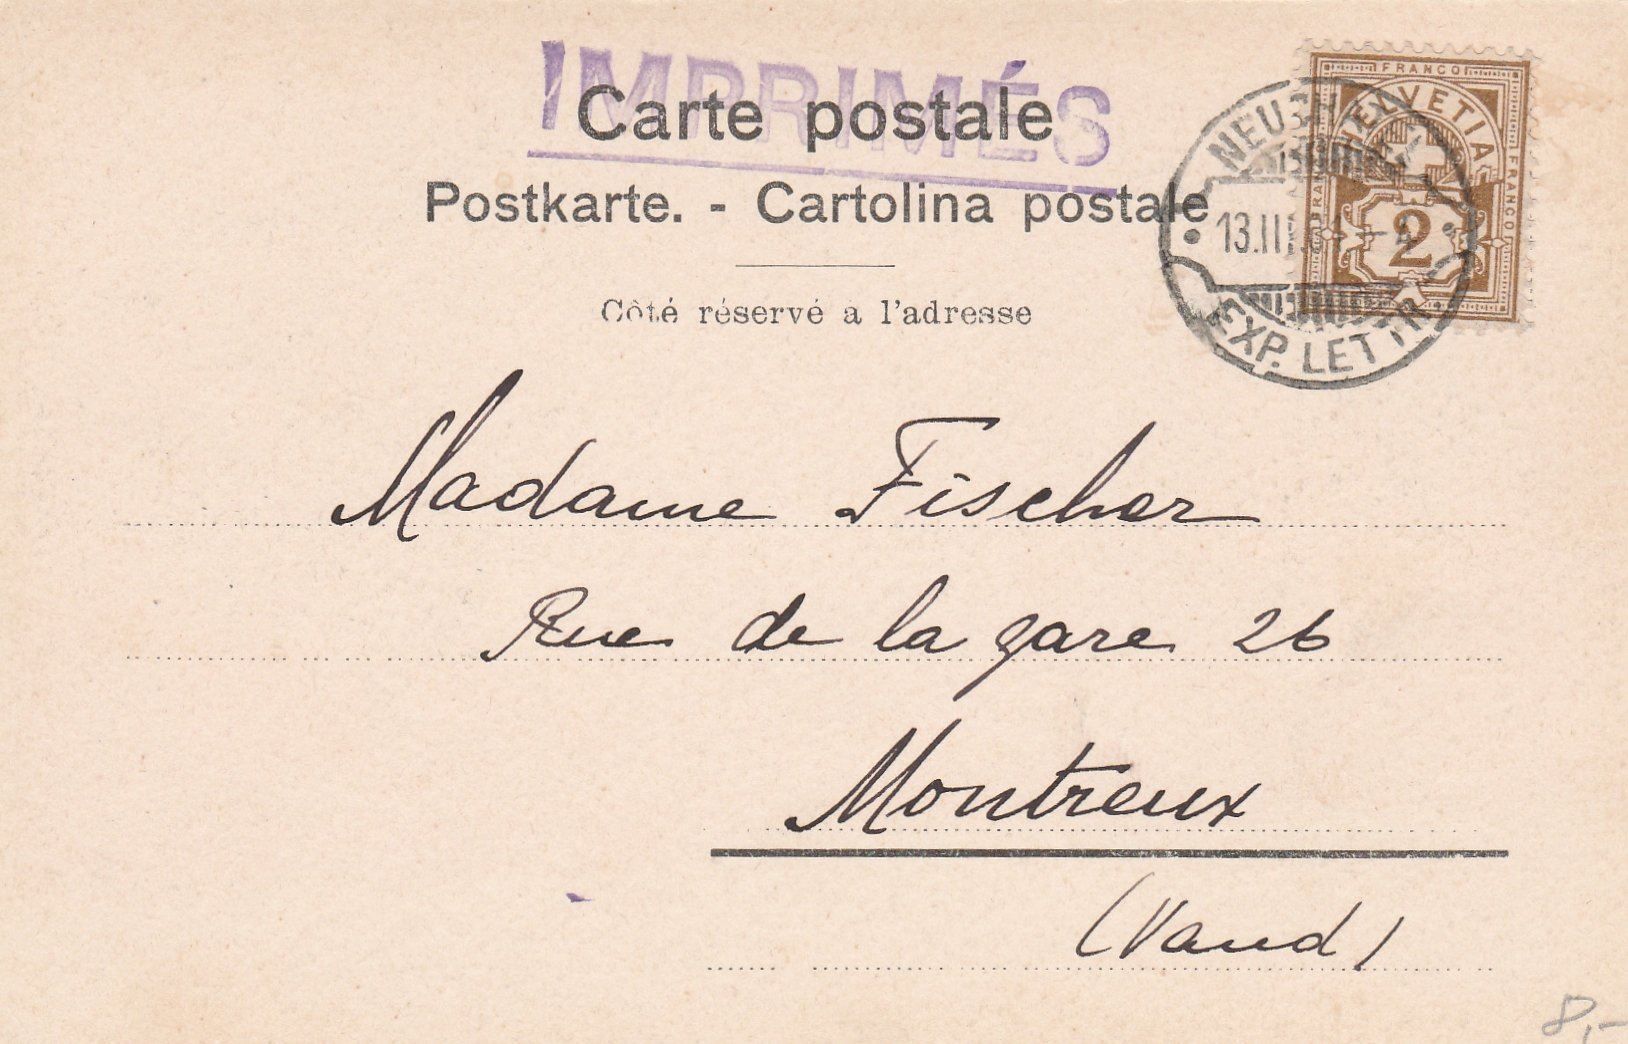 IMPRIMÉS
Carte postale
Postkarte. - Cartolina postale
Côté réservé à l'adresse
FRANCO
HELVETIA
FRANCO
FRANCO
2
EXP. LETTR.
Madame Fischer
Rue de la gare 26
Montreux
(Vaud)
8,-